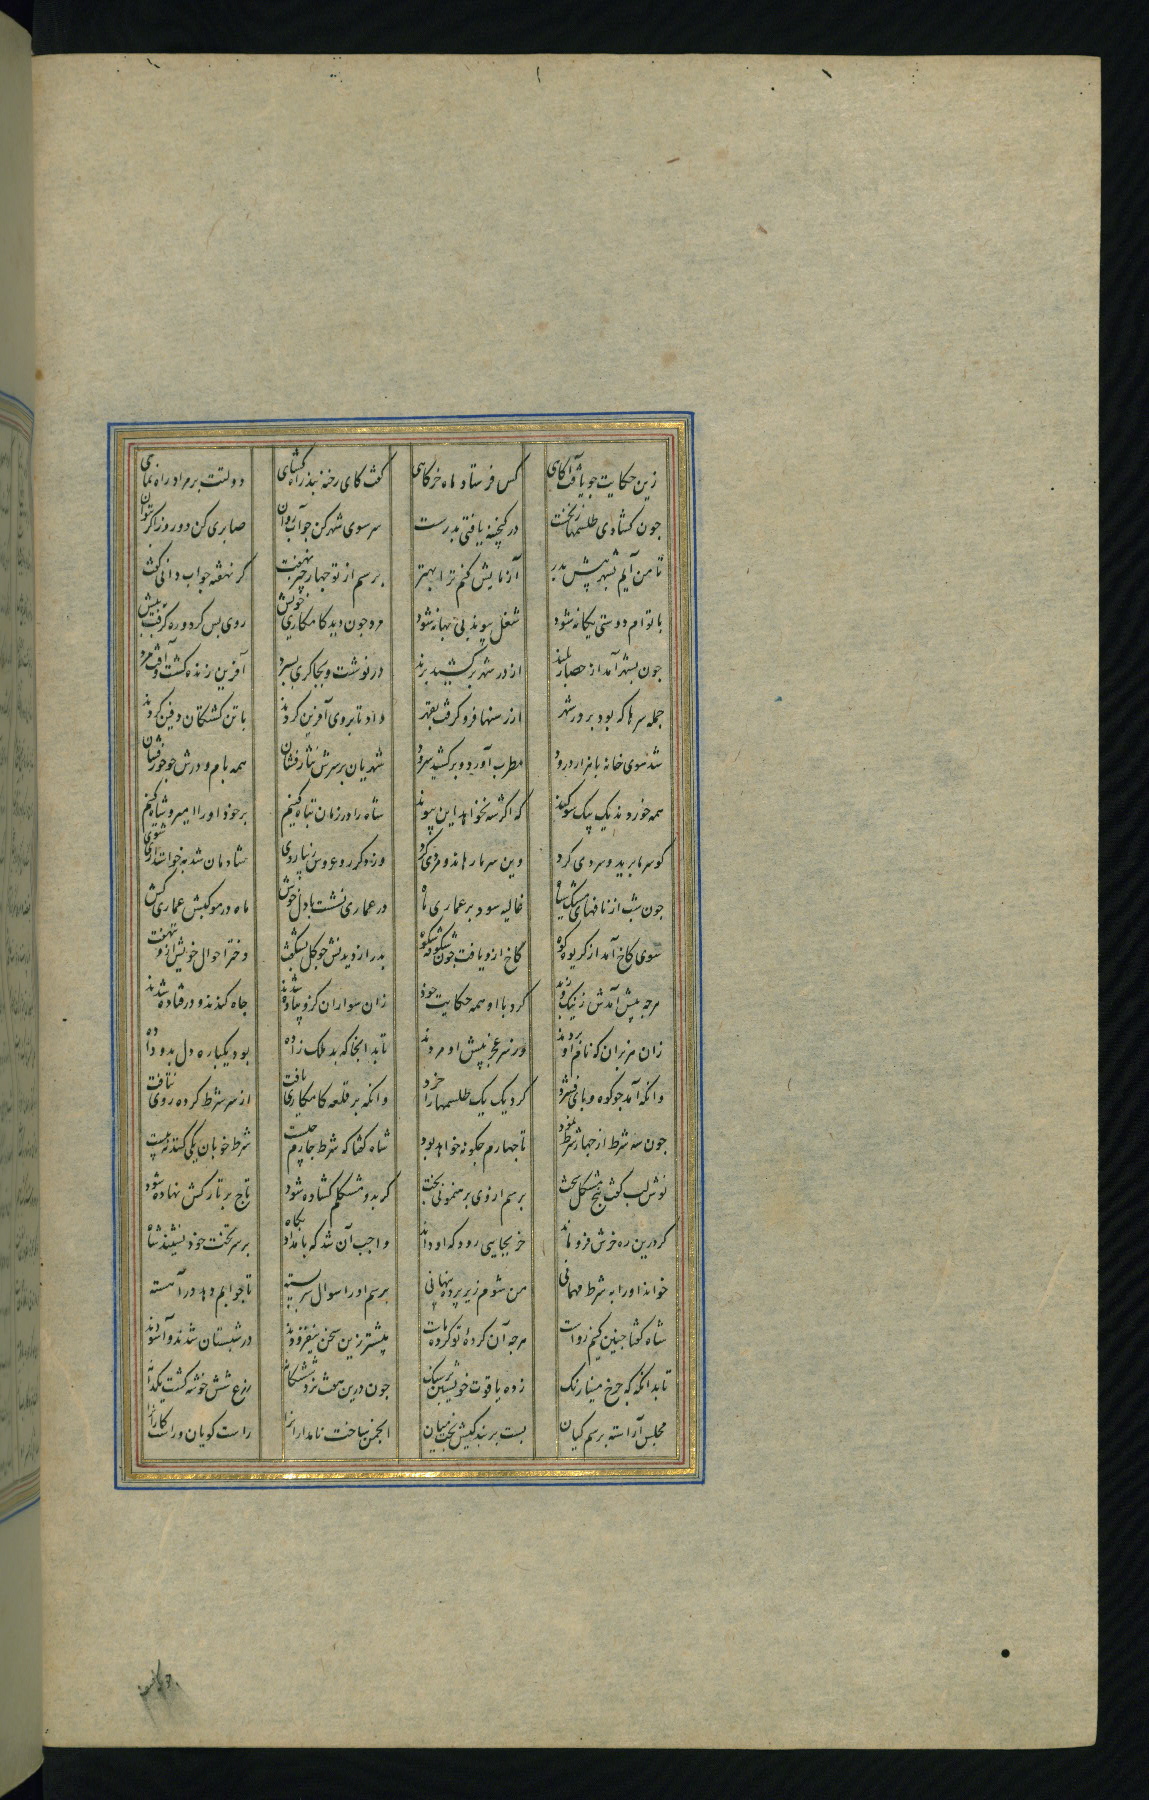 زین حکایت جو یافت آکاهی کس فرستاد ماه خرکاهی کفت کای رخنه بند راه کشای دولتت بر مراد راه نمای
جون کشادی طلسمها ز نخست در کنجینه یافتی بدرست سر سوی شهر کن جو آب روان صابری کن دو روز اکر بتوان
تا من آیم بشهر پیش پدر آزمایش کنم ترا بهنر پرسم از تو جهار جیز نهفت کر نهفته جواب دانی کفت
با توام دوستی یکانه شود شغل پیوند بی بهانه شود مرد جون دید کامکاری خویش روی پس کرد و ره کرفت به پیش
جون بشهر آمد از حصار بلند از در شهر برکشید پرند در نوشت و بجاکری بسپرد آفرین زنده کشت و آفت مرد
جمله سرها که بود بر در شهر از رسنها فرو کرفت بقهر داد تا بر وی آفرین کردند با تن کشتکان دفین کردند
شد سوی خانه با هزار درود مطرب آورد و برکشید سرود شهریان بر سرش نثار فشان همه بام و درش جو خور فشان
همه خوردند یک بیک سوکند که اکر شه نخواهد این پیوند شاه را در زمان تباه کنیم بر خود او را امیر و شاه کنیم
کو سر ما برید و سردی کرد وین سر ما رهاند و مردی کرد وز دکر رو عروس زیبا روی شادمان شد به خواستداری شوی
جون شب از نافهای مشک سیاه غالیه سود بر عماری ماه در عماری نشست با دل خوش ماه در موکبش عماری کش
سوی کاخ آمد از کریوه کوه کاخ ازو یافت جون شکوفه شکوه پدر از دیدنش جو کل بشکفت دختر احوال خویش ازو ننهفت
هرجه پیش آمدش ز نیک و ز بد کرد با او همه حکایت خود زان سواران کزو پیاده شدند جاه کندند و در فتاده شدند
زان هزبران که نام او بردند وز سر عجز پیش او مردند تا بدانجا که بد ملک زاده بود یکباره دل بدو داده
وانکه آمد جو کوه و پای فشرد کرد یک یک طلسمها را خرد وانکه بر قلعه کامکاری یافت از سر شرط کرده روی نتافت
جون سه شرط از جهار شرط نمود تا جهارم جکونه خواهد بود شاه کفتا که شرط جارم جیست شرط خوبان یکی کنند نه بیست
نوش لب کفت پنج مشکل سخت پرسم از وی برهنمونی بخت کر بدو مشکلم کشاده شود تاج بر تارکش نهاده شود
کر درین ره خرش فرو ماند خر بجایی رود که او داند واجب آن شد که بامداد پکاه بر سر تخت خود نشیند شاه
خواند او را به شرط مهمانی من شوم زیر پرده پنهانی پرسم او را سوال سربسته تا جوابم دهد در آهسته
شاه کفتا جنین کنیم رواست هرجه آن کردهٔ تو کرده ماست بیشتر زین سخن نیفزودند در شبستان شدند و آسودند
تا بدانکه که جرخ مینا رنک زده یاقوت خویشتن بر سنک
مجلس آراسته برسم کیان بست بر بندکیش بخت میان انجمن ساخت نامدارانرا راست کویان و راست کارانرا